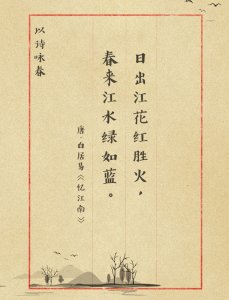 以诗咏春
日出江花红胜火，
春来江水绿如蓝。
唐·白居易《忆江南》